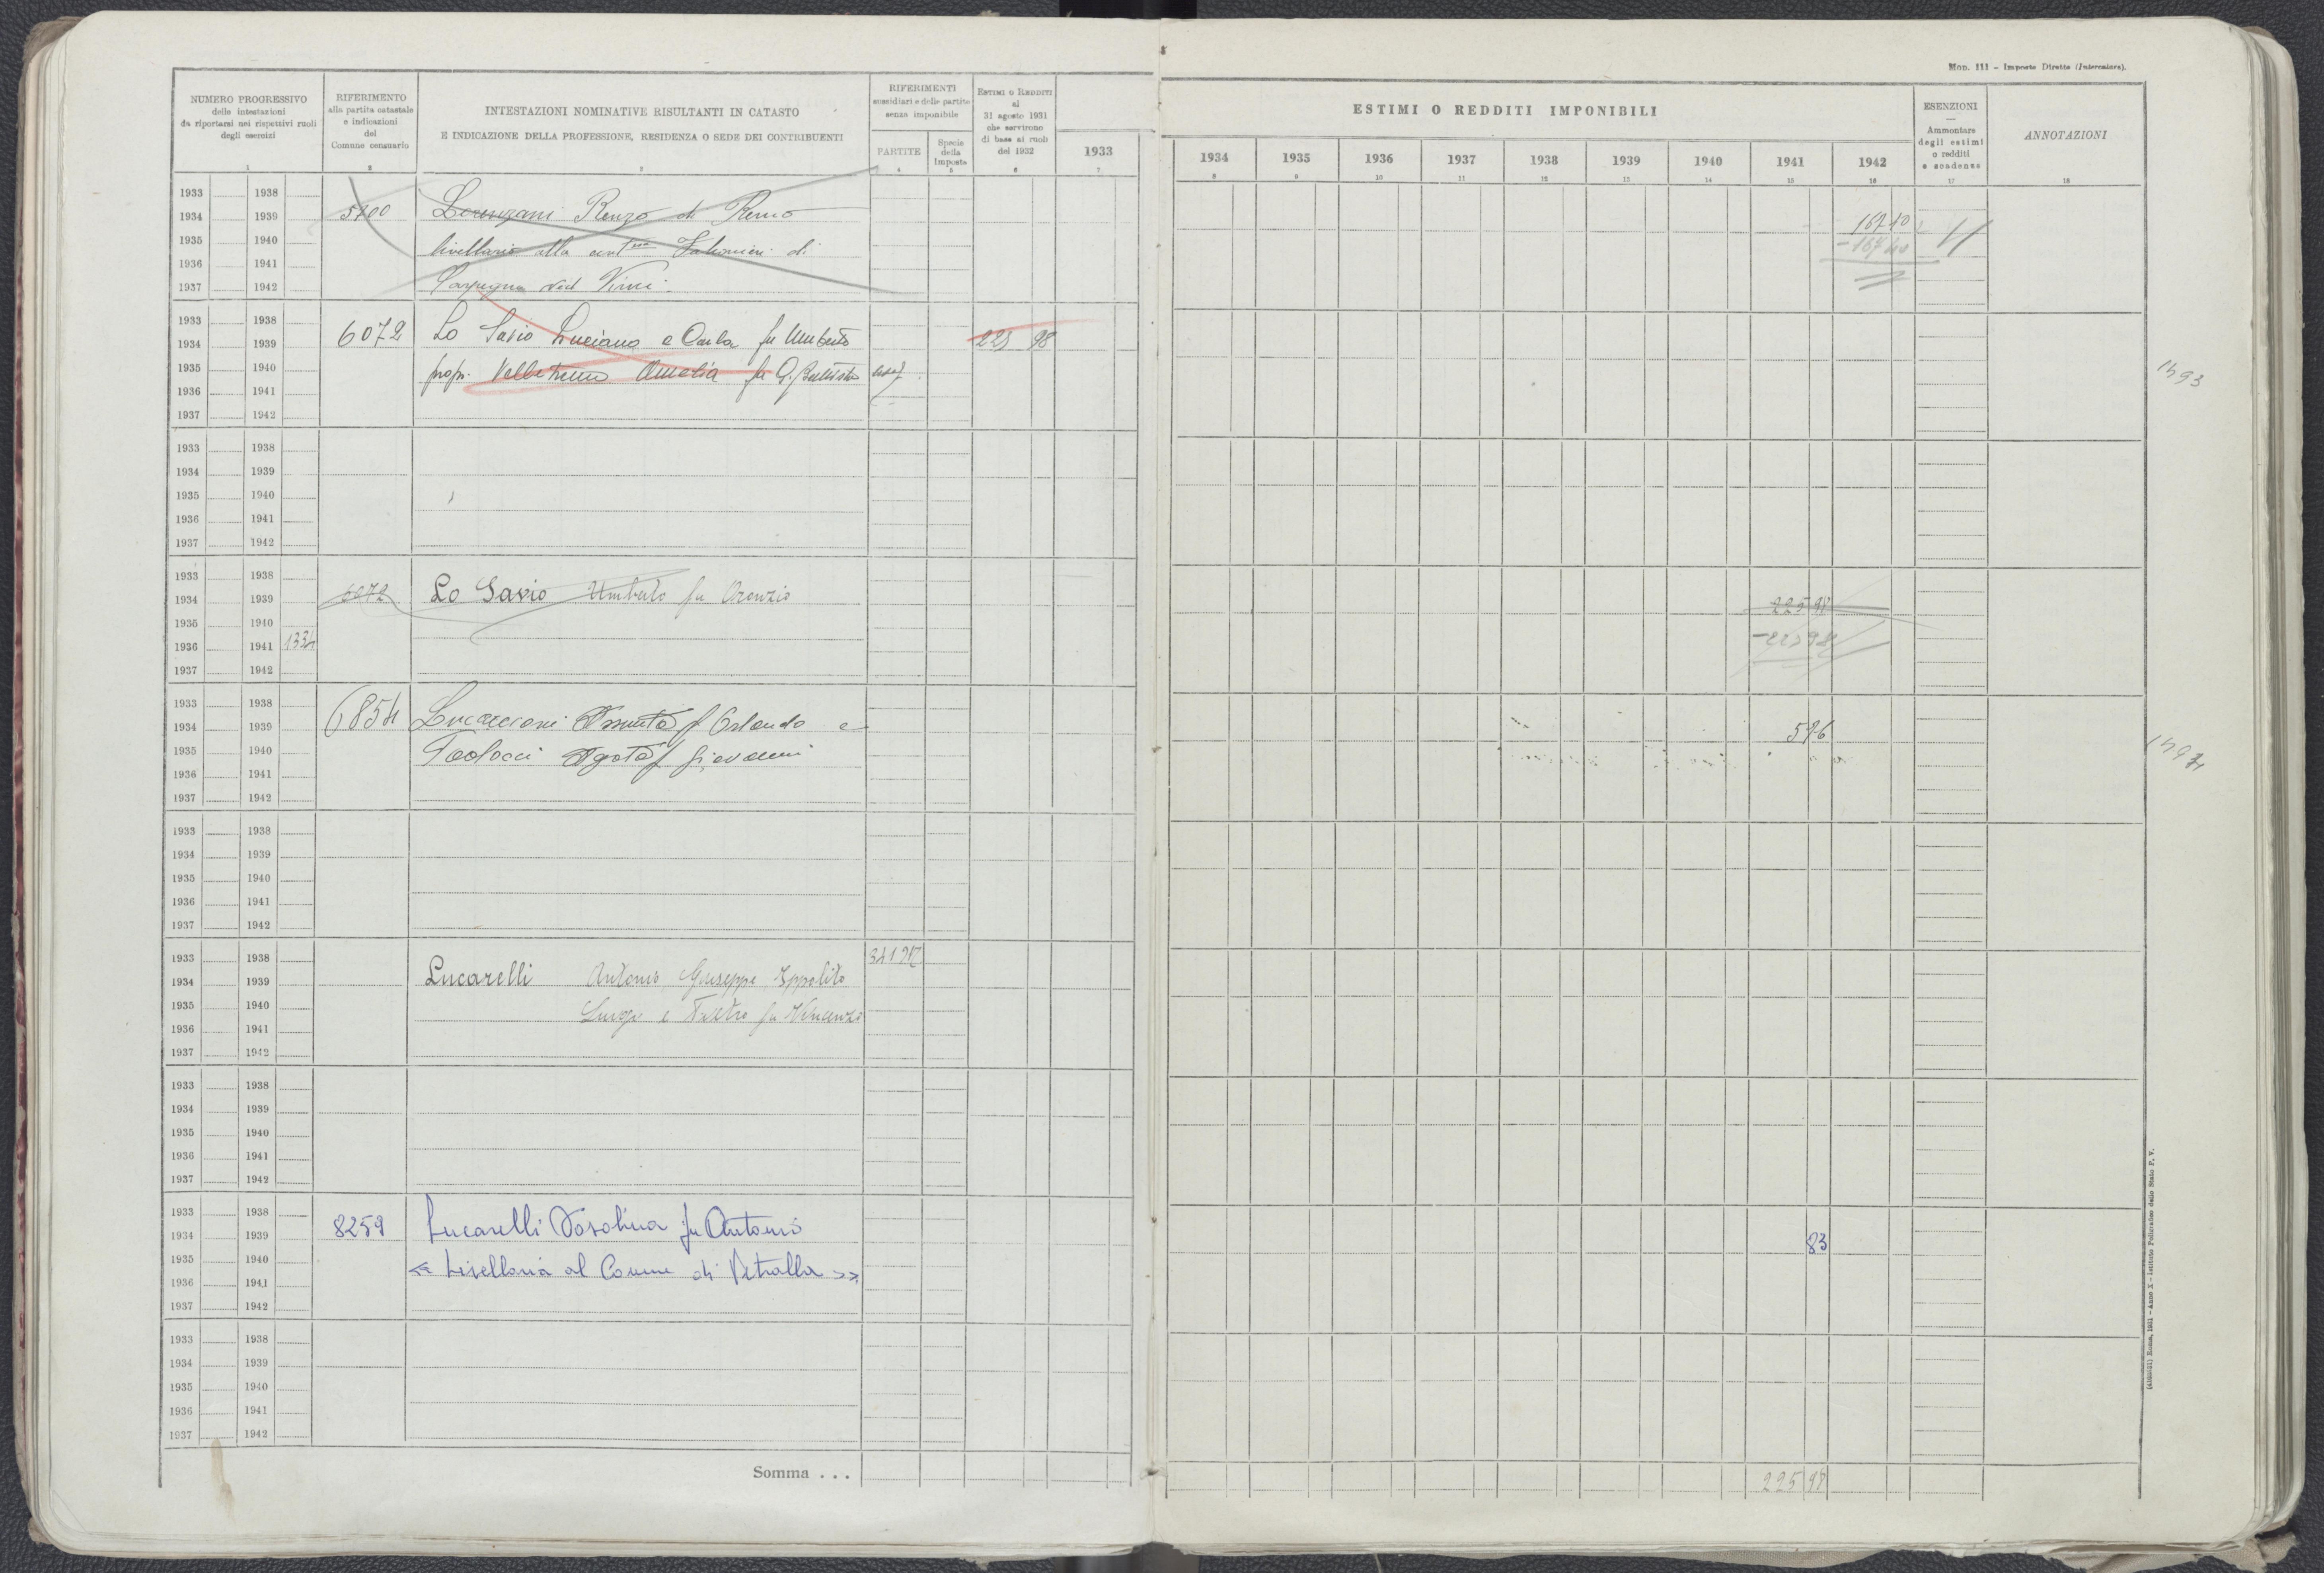 Mod. 111 - Imposte Dirette (Intercalare).
NUMERO PROGRESSIVO
delle intestazioni
da riportarsi nei rispettivi ruoli
degli esercizi
1
RIFERIMENTO
alla partita catastale
e indicazioni
del
Comune censuario
2
INTESTAZIONI NOMINATIVE RISULTANTI IN CATASTO
E INDICAZIONE DELLA PROFESSIONE, RESIDENZA O SEDE DEI CONTRIBUENTI
3
RIFERIMENTI
sussidiari e delle partite
senza imponibile
PARTITE
4
Specie
della
Imposta
5
ESTIMI O REDDITI
al
31 agosto 1931
che servirono
di base ai ruoli
del 1932
6
ESTIMI O REDDITI IMPONIBILI
1933 1934 1935 1936 1937 1938 1939 1940 1941 1942
7 8 9 10 11 12 13 14 15 16
ESENZIONI
—
Ammontare
degli estimi
o redditi
e scadenze
17
ANNOTAZIONI
18
1933 1938
1934 1939 Lorenzani Renzo di Remo
1935 1940 livellario alla di
1936 1941
1937 1942 Carpegna
1933 1938
1934 1939 6072 Lo Savio Luciano e Carla fu Umberto 225 98
1935 1940 propr. Amelia fu G. Battista usuf.
1936 1941
1937 1942
1393
1933 1938
1934 1939
1935 1940
1936 1941
1937 1942
1933 1938
1934 1939 6072 Lo Savio Umberto fu Oronzio 225 98
1935 1940
1936 1941 1334 -225 98
1937 1942
1933 1938
1934 1939 6854 Lucaccioni Assunta f Orlando e 596
1935 1940 Paolocci Agata f Giovanni
1936 1941
1937 1942
1394
1933 1938
1934 1939
1935 1940
1936 1941
1937 1942
1933 1938
1934 1939 Lucarelli Antonio Giuseppe Ippolito
1935 1940 Luigi e Pietro fu Vincenzo
1936 1941
1937 1942
1933 1938
1934 1939
1935 1940
1936 1941
1937 1942
1933 1938
1934 1939 8259 Lucarelli Rosolina fu Antonio 83
1935 1940
1936 1941 « Livellaria al Comune di Vetralla »
1937 1942
1933 1938
1934 1939
1935 1940
1936 1941
1937 1942
Somma . . . 225 98
Roma, 1931 - Anno X - Istituto Poligrafico dello Stato P. V.